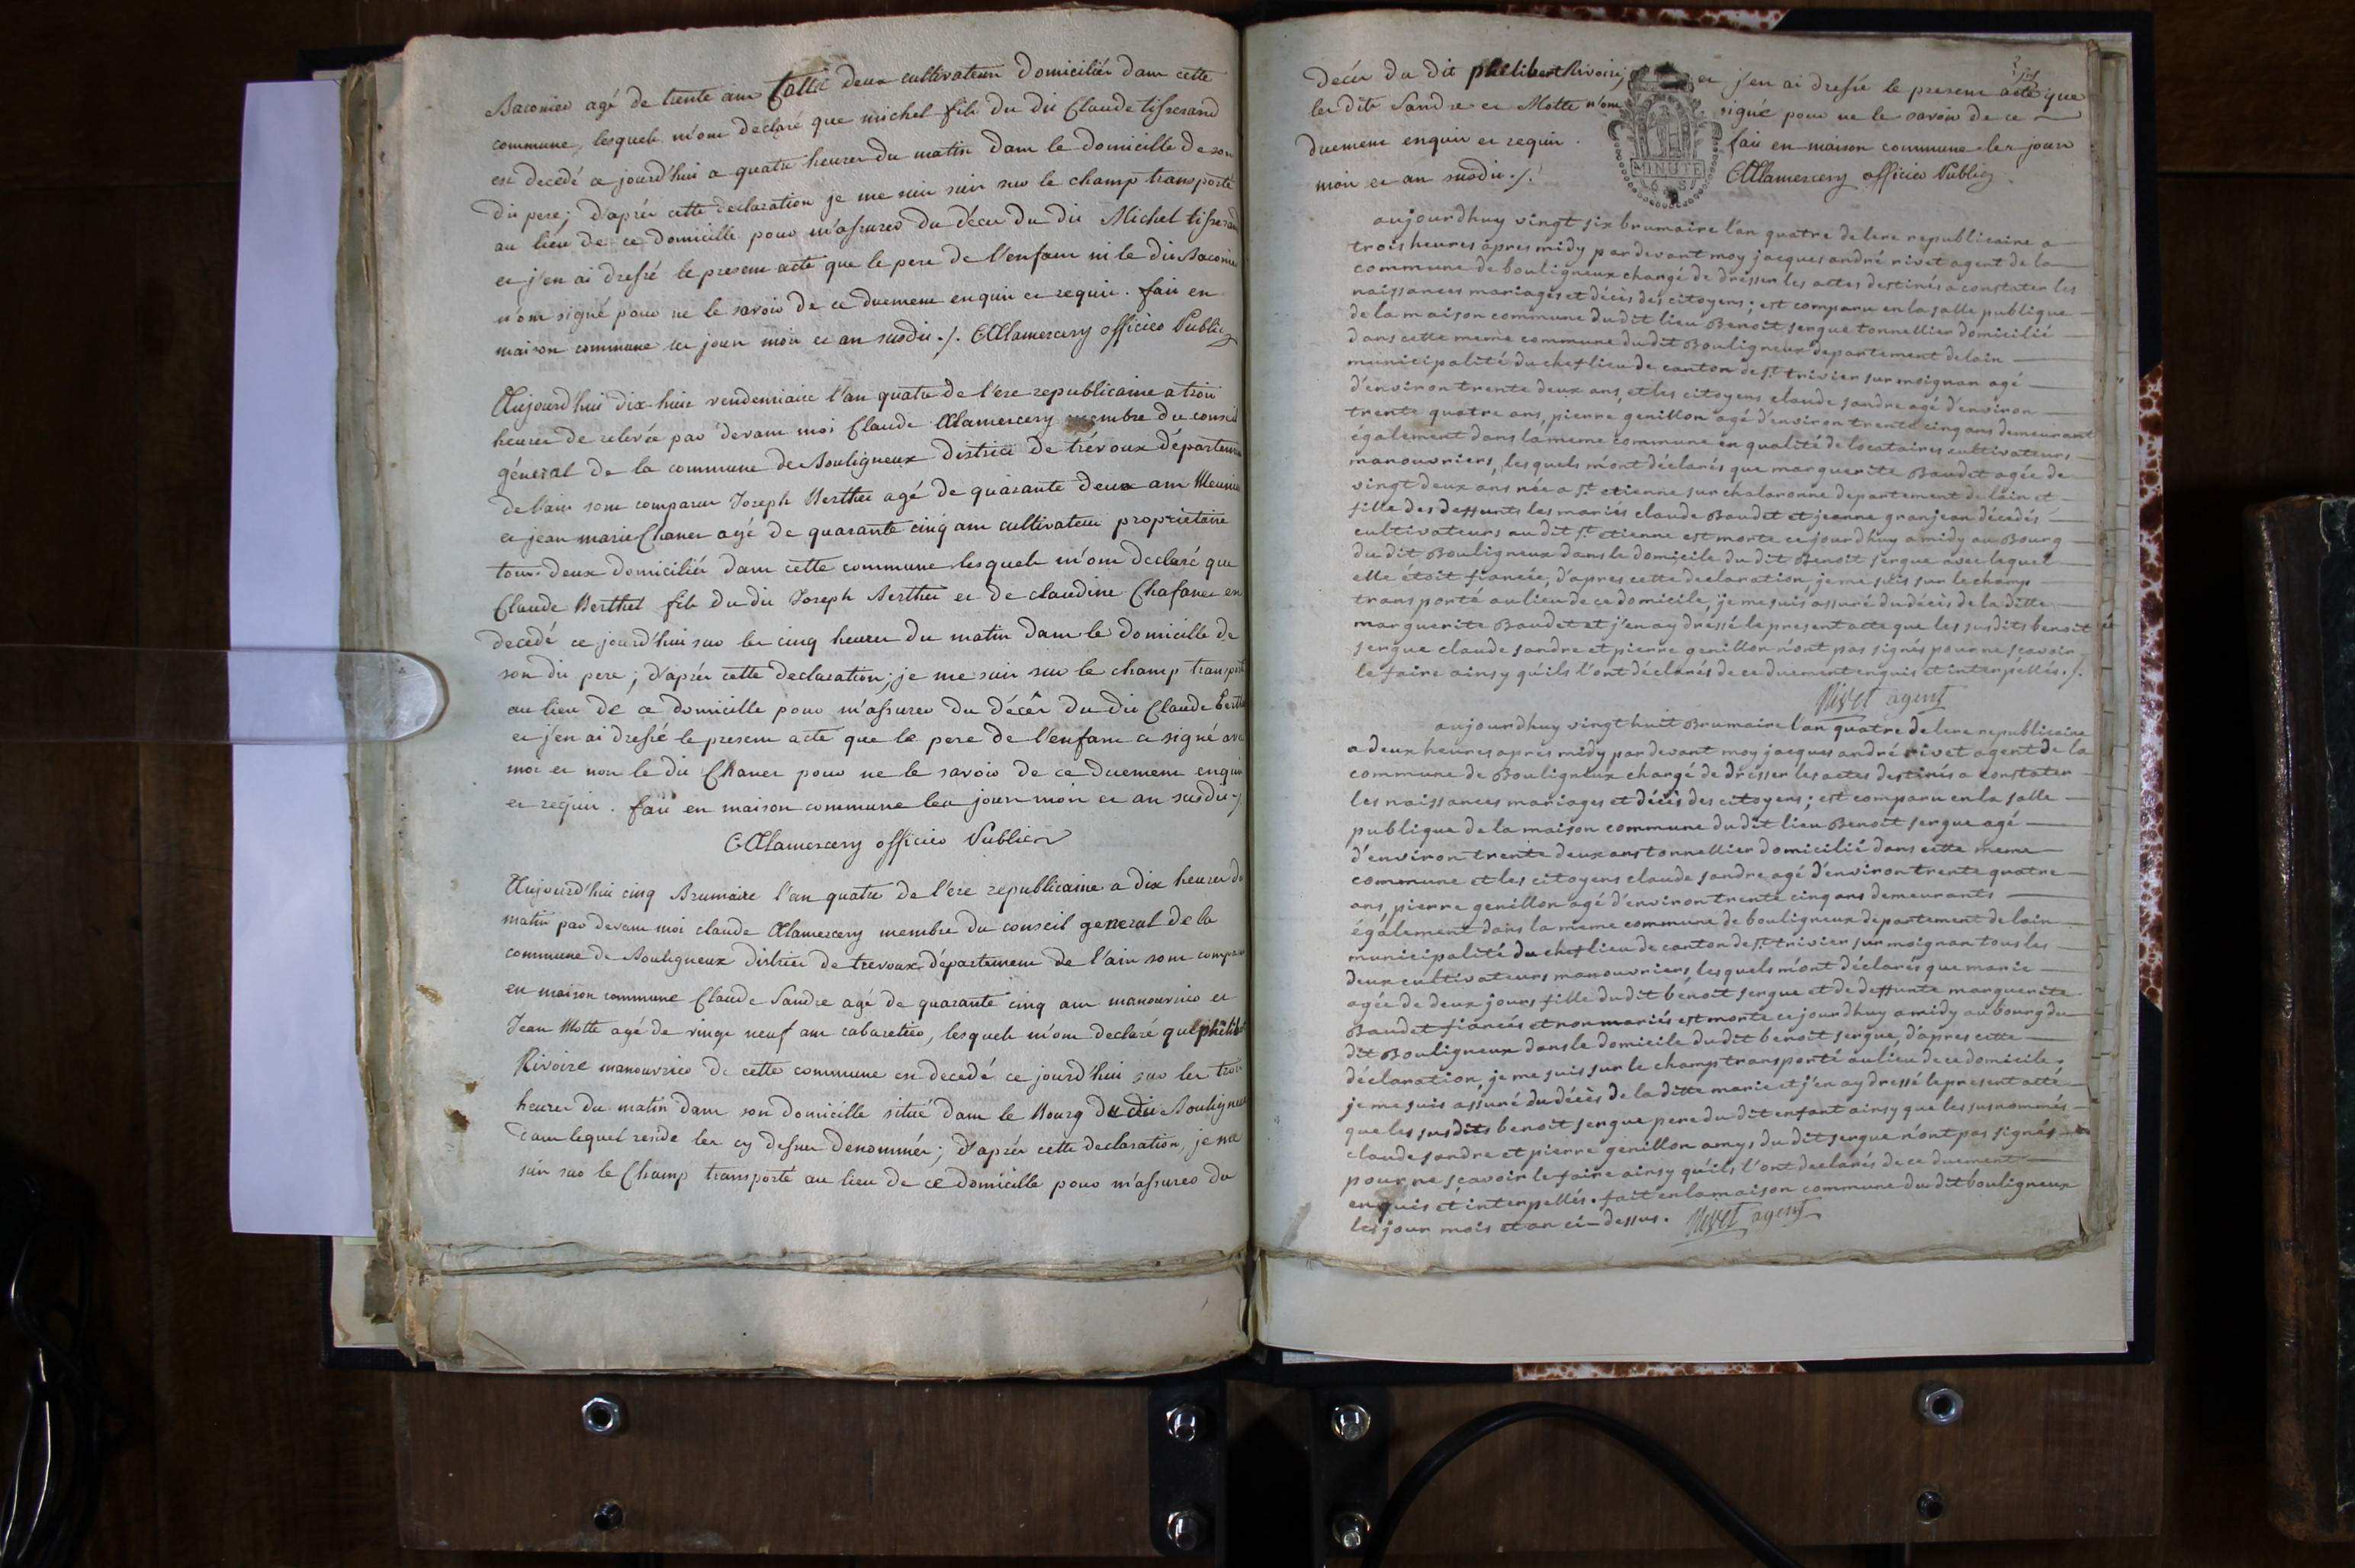 Baconier agé de trente ans tous deux cultivateurs Domiciliés dans cette
commune, lesquels m'ont declaré que michel fils du dit Claude tisserand
est decedé ce jourd'hui a quatre heures du matin dans le domicille de son
dit pere; d'aprés cette declaration je me suis sur le champ transporté
au lieu de ce domicille pour m'assurer du décès du dit Michel tisserand
et j'en ai dressé le present acte que le pere de l'enfant ni le dit Baconier
n'ont signé pour ne le savoir de ce duement enquis et requis. fait en
maison commune les jour mois et an susdit ./. C Alamercery officier Public
Aujourd'hui dix-huit vendemiaire l'an quatre de l'ere republicaine a trois
heures de relevée par devant moi Claude Alamercery membre du conseil
géneral de la commune de Bouligneux district de trévoux département
de l'ain sont comparus Joseph Berthet agé de quarante deux ans Meunier
et jean marie Chanet agé de quarante cinq ans cultivateur proprietaire
tous deux domiciliés dans cette commune lesquels m'ont declaré que
Claude Berthet fils du dit Joseph Berthet et de claudine Chafanet est
decedé ce jourd'hui sur les cinq heures du matin dans le domicille de
son dit pere; d'aprés cette declaration; je me suis sur le champ transporté
au lieu de ce domicille pour m'assurer du décès du dit Claude Berthet
et j'en ai dressé le present acte que le pere de l'enfant a signé avec
moi et non le dit Chanet pour ne le savoir de ce duement enquis
et requis. fait en maison commune les jour mois et an susdit ./.
C Alamercery officier Public
Aujourd'hui cinq Brumaire l'an quatre de l'ére republicaine a dix heures du
matin par devant moi claude Alamercery membre du conseil general de la
commune de Bouligneux district de trevoux département de l'ain sont comparus
en maison commune Claude Sandre agé de quarante cinq ans manouvrier et
Jean Motte agé de vingt neuf ans cabaretier, lesquels m'ont declaré que philibert
Rivoire manouvrier de cette commune est decedé ce jourd'hui sur les trois
heures du matin dans son domicille situé dans le Bourg du dit Bouligneux
dans lequel reside les cy dessus denommés; d'aprés cette declaration, je me
suis sur le Champ transporté au lieu de ce domicille pour m'assurer du
décès du dit philibert Rivoire, et j'en ai dressé le present acte que
les dits Sandre et Motte n'ont signé pour ne le savoir de ce
duement enquis et requis. fait en maison commune les jour
mois et an susdit ./. C Alamercery officier Public
MINUTE
aujourdhuy vingt six brumaire l'an quatre de lere republicaine a
trois heures apres midy par devant moy jacques andré rivet agent de la
commune de bouligneux chargé de dresser les actes destinés a constater les
naissances mariages et décès des citoyens; est comparu en la salle publique
de la maison commune du dit lieu Benoit sergue tonnellier domicilié
dans cette meme commune du dit Bouligneux departement de lain
municipalité du chef lieu de canton de st trivier sur moignan agé
d'environ trente deux ans, et les citoyens claude sandre agé d'environ
trente quatre ans, pierre genillon agé d'environ trente cinq ans demeurant
également dans la meme commune en qualité de locataires cultivateurs
manouvriers, lesquels m'ont déclarés que marguerite Baudet agée de
vingt deux ans née a st etienne sur chalaronne departement de lain et
fille des deffunts les mariés claude Baudet et jeanne granjean décedés
cultivateurs au dit st etienne est morte ce jourdhuy a midy au Bourg
du dit Bouligneux dans le domicile du dit Benoit sergue avec lequel
elle étoit fiancée, d'apres cette declaration, je me suis sur le champ
transporté au lieu de ce domicile, je me suis assuré du décès de la ditte
marguerite Baudet et j'en ay dressé le present acte que les susdits benoit et
sergue claude sandre et pierre genillon n'ont pas signés pour ne scavoir
le faire ainsy qu'ils l'ont déclarés de ce duement enquis et interpellés ./.
Rivet agent
aujourdhuy vingt huit Brumaire l'an quatre de lere republicaine
a deux heures apres midy par devant moy jacques andré rivet agent de la
commune de Bouligneux chargé de dresser les actes destinés a constater
les naissances mariages et décès des citoyens; est comparu en la salle
publique de la maison commune du dit lieu Benoit sergue agé
d'environ trente deux ans tonnellier domicilié dans cette meme
commune et les citoyens claude sandre agé d'environ trente quatre
ans, pierre genillon agé d'environ trente cinq ans demeurants
également dans la meme commune de bouligneux departement de lain
municipalité du chef lieu de canton de st trivier sur moignan tous les
deux cultivateurs manouvriers, lesquels m'ont déclarés que marie
agée de deux jours fille du dit bénoit sergue et de deffunte marguerite
Baudet fiancés et non mariés est morte ce jourdhuy a midy au bourg du
dit Bouligneux dans le domicile du dit benoit sergue, d'apres cette
déclaration, je me suis sur le champ transporté au lieu de ce domicile,
je me suis assuré du décès de la ditte marie et j'en ay dressé le present acte
que les susdits benoit sergue pere du dit enfant ainsy que les susnommés
claude sandre et pierre genillon amys du dit sergue n'ont pas signés
pour ne scavoir le faire ainsy qu'ils l'ont declarés de ce duement
enquis et interpellés. fait en la maison commune du dit bouligneux
les jour mois et an ci-dessus. Rivet agent